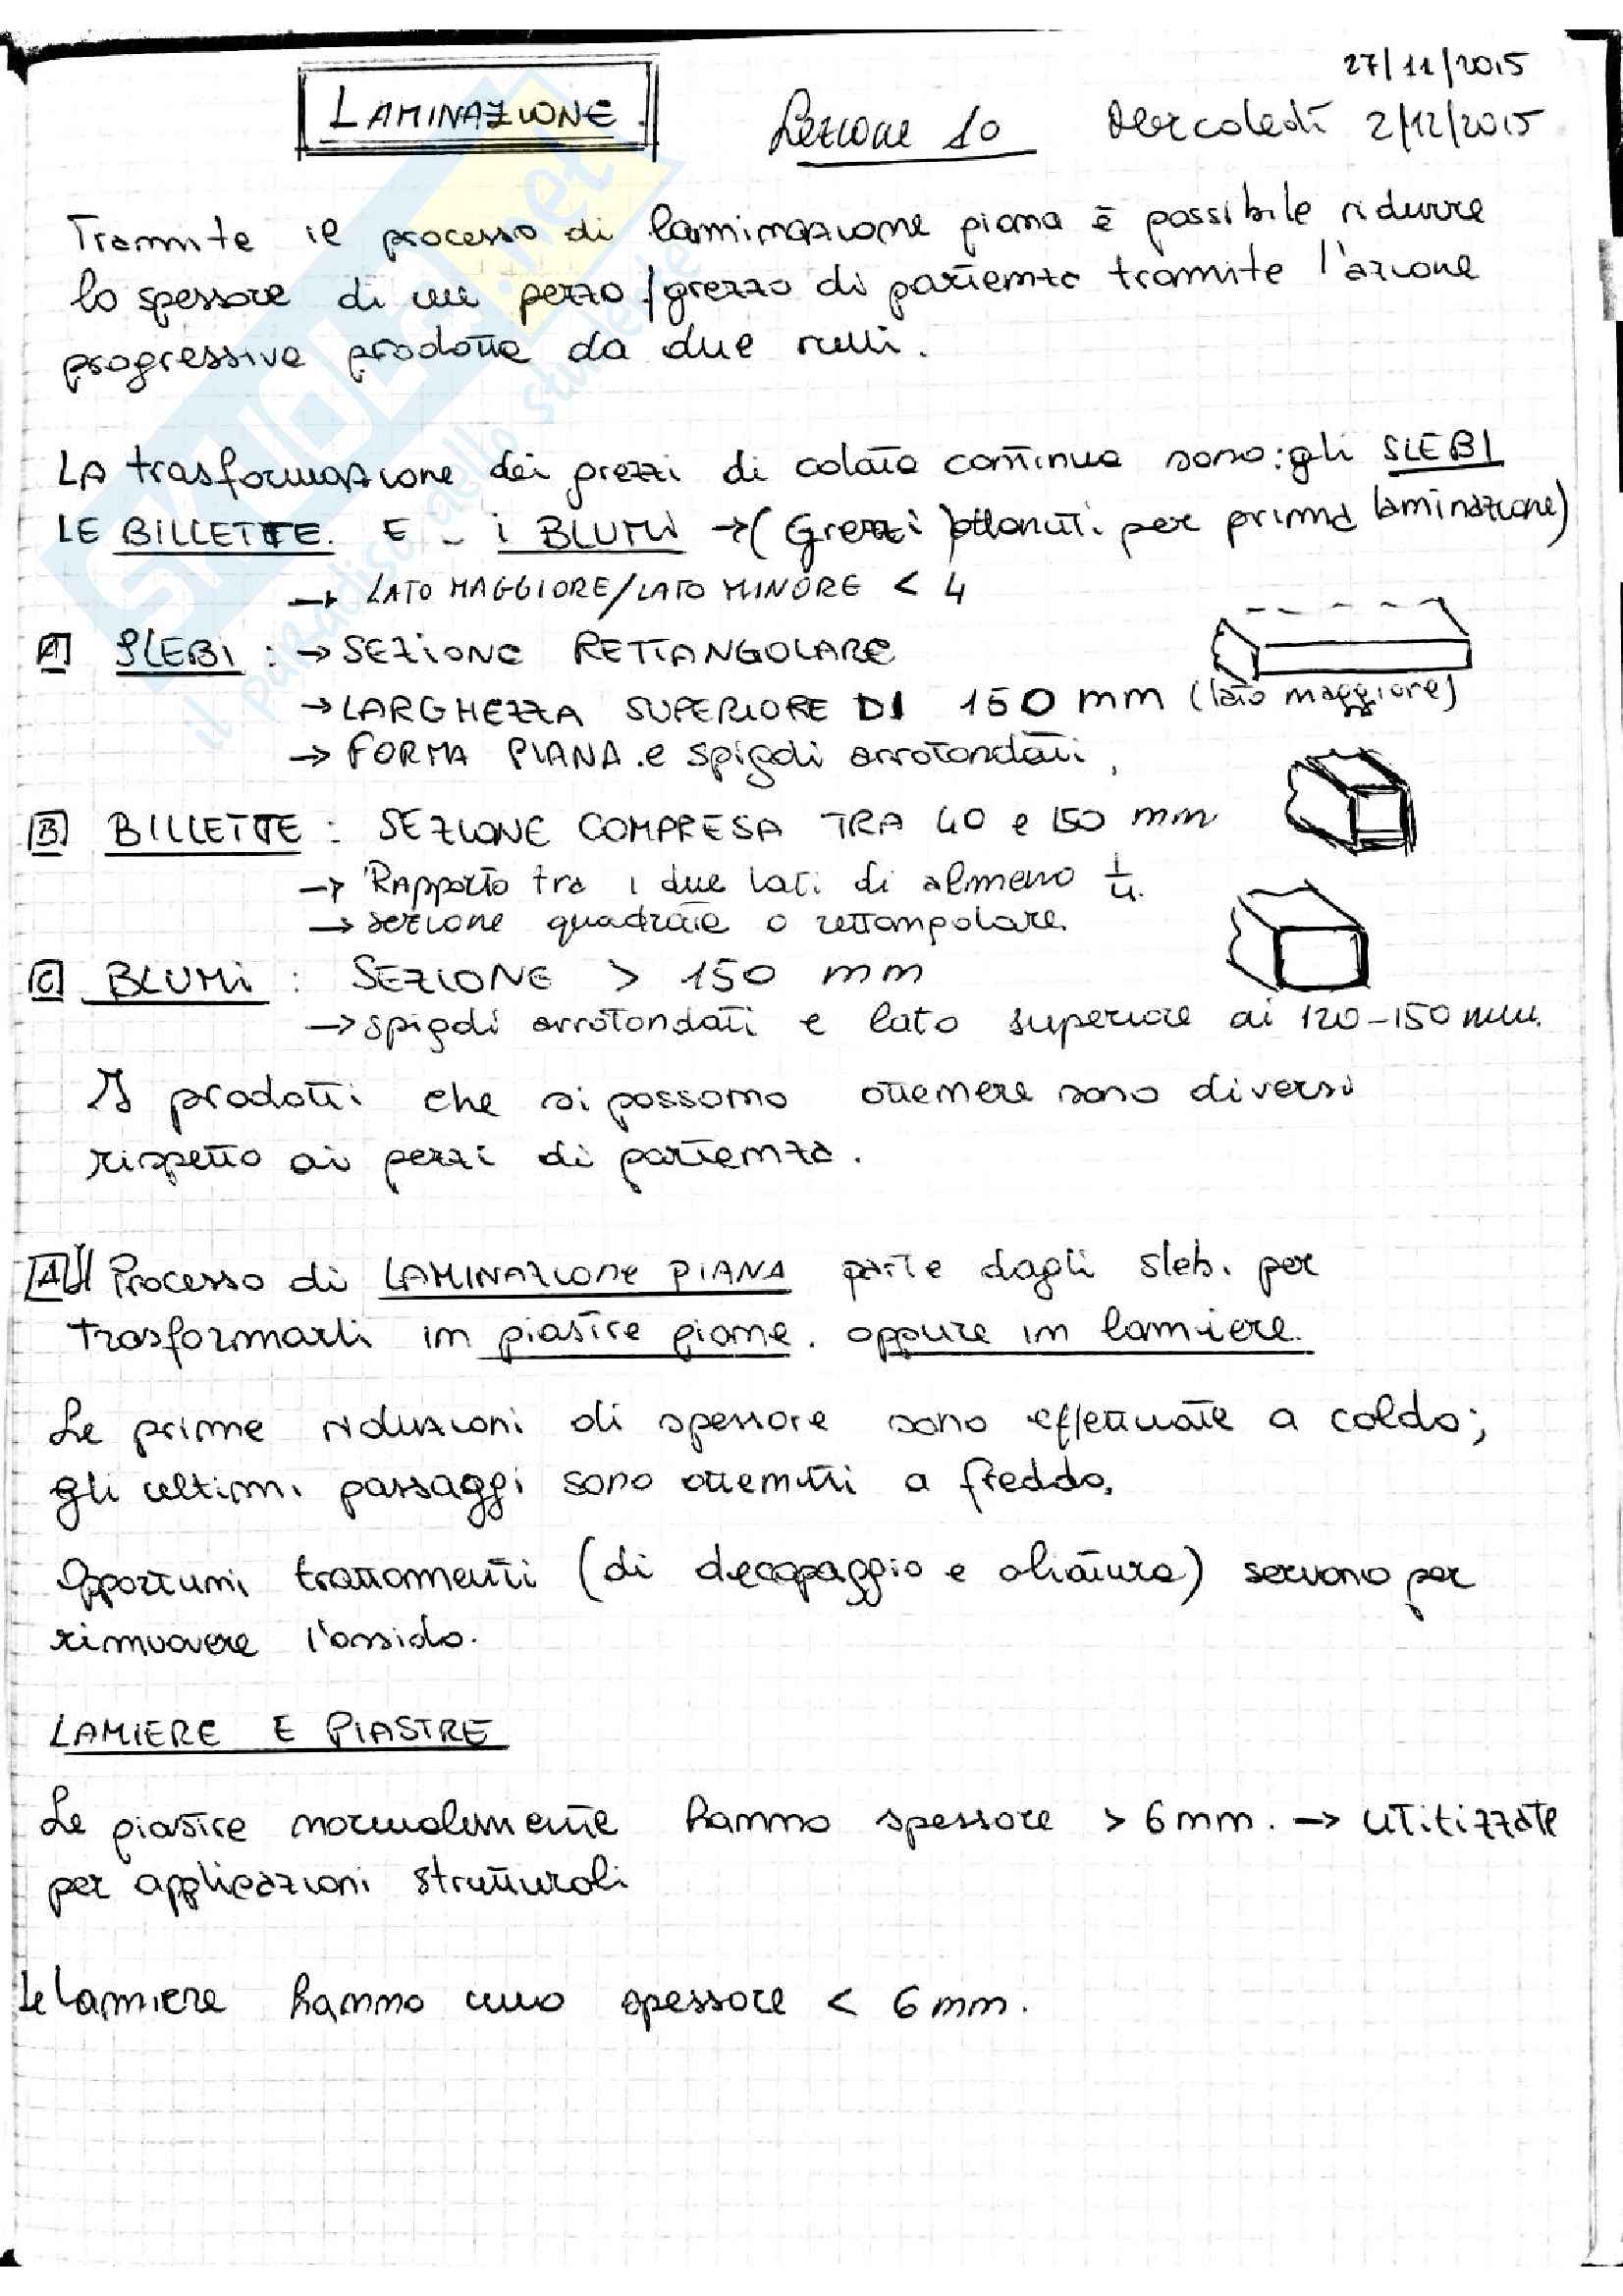 27/11/2015
LAMINAZIONE.
Lezione 10 Mercoledì 2/12/2015
Tramite il processo di laminazione piana è possibile ridurre
lo spessore di un pezzo/grezzo di partenza tramite l'azione
progressiva prodotta da due rulli.
LA trasformazione dei grezzi di colata continua sono: gli SLEBI
LE BILLETTE. E - i BLUMi → (Grezzi ottenuti per prima laminazione)
→ LATO MAGGIORE/LATO MINORE < 4
A SLEBi : → SEZIONE RETTANGOLARE
→ LARGHEZZA SUPERIORE DI 150 mm (lato maggiore)
→ FORMA PIANA. e spigoli arrotondati,
B BILLETTE : SEZIONE COMPRESA TRA 40 e 150 mm
→ Rapporto tra i due lati di almeno 1/4.
→ sezione quadrata o rettangolare.
C BLUMi : SEZIONE > 150 mm
→ spigoli arrotondati e lato superiore ai 120-150 mm.
I prodotti che si possono ottenere sono diversi
rispetto ai pezzi di partenza.
A Il Processo di LAMINAZIONE PIANA parte dagli slebi per
trasformarli in piastre piane. oppure in lamiere.
Le prime riduzioni di spessore sono effettuate a caldo;
gli ultimi passaggi sono ottenuti a freddo.
Opportuni trattamenti (di decapaggio e oliatura) servono per
rimuovere l'ossido.
LAMIERE E PIASTRE
Le piastre normalmente hanno spessore > 6 mm. → utilizzate
per applicazioni strutturali
Le lamiere hanno uno spessore < 6 mm.
SKUOLA.net
il paradiso dello studente